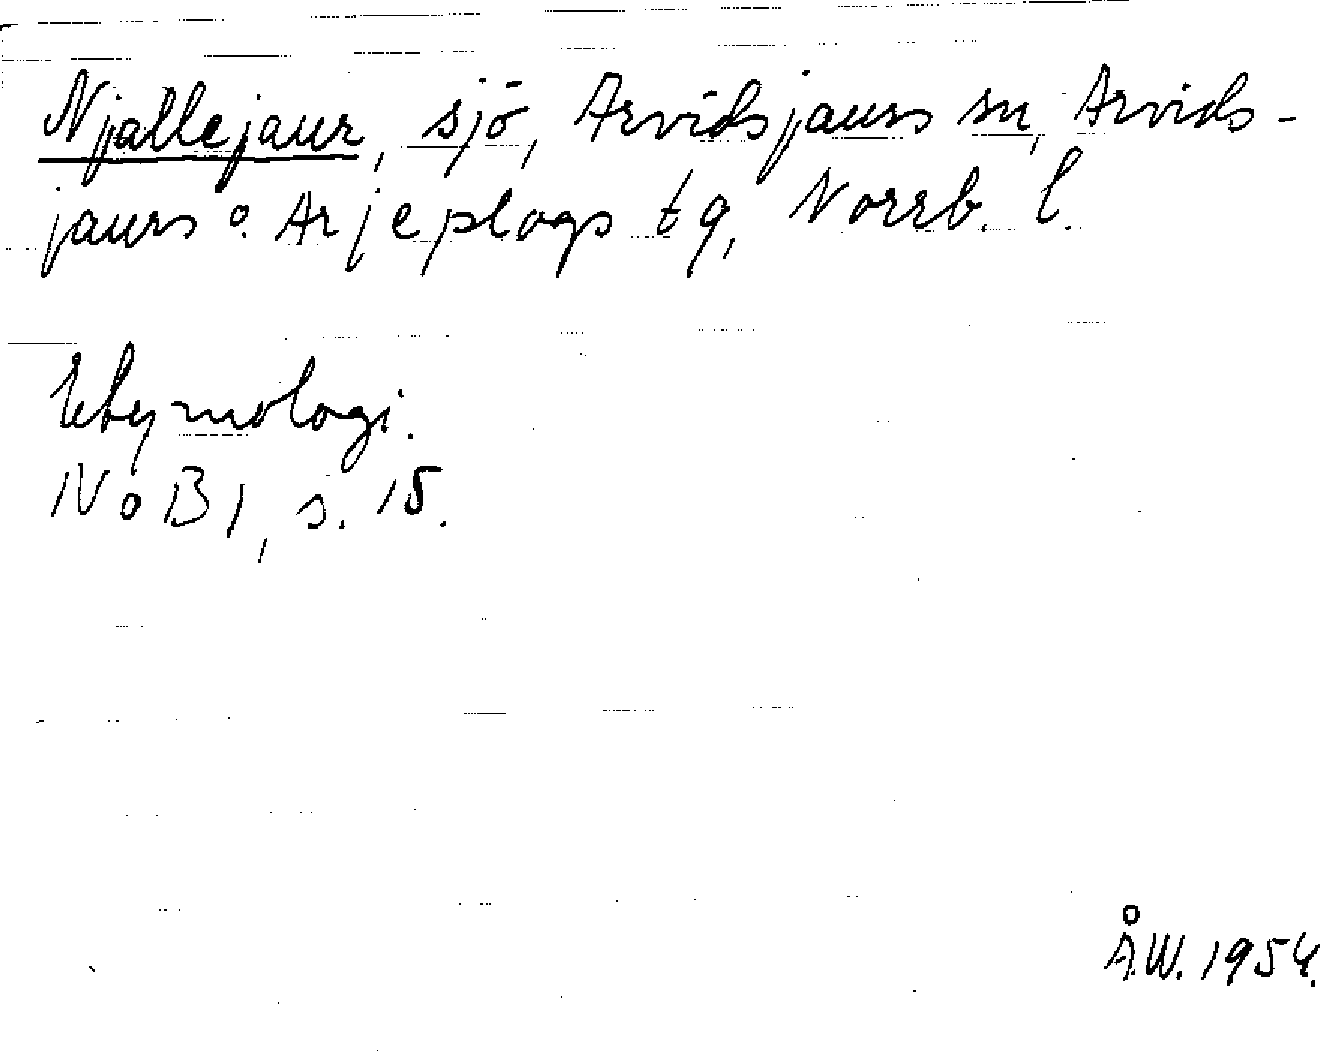 Njallejaur, sjö, Arvidsjaurs sn, Arvids-
jaurs o. Arjeplogs tg, Norrb. l.
Etymologi.
NoB 1, s. 15.
Å.W. 1954.